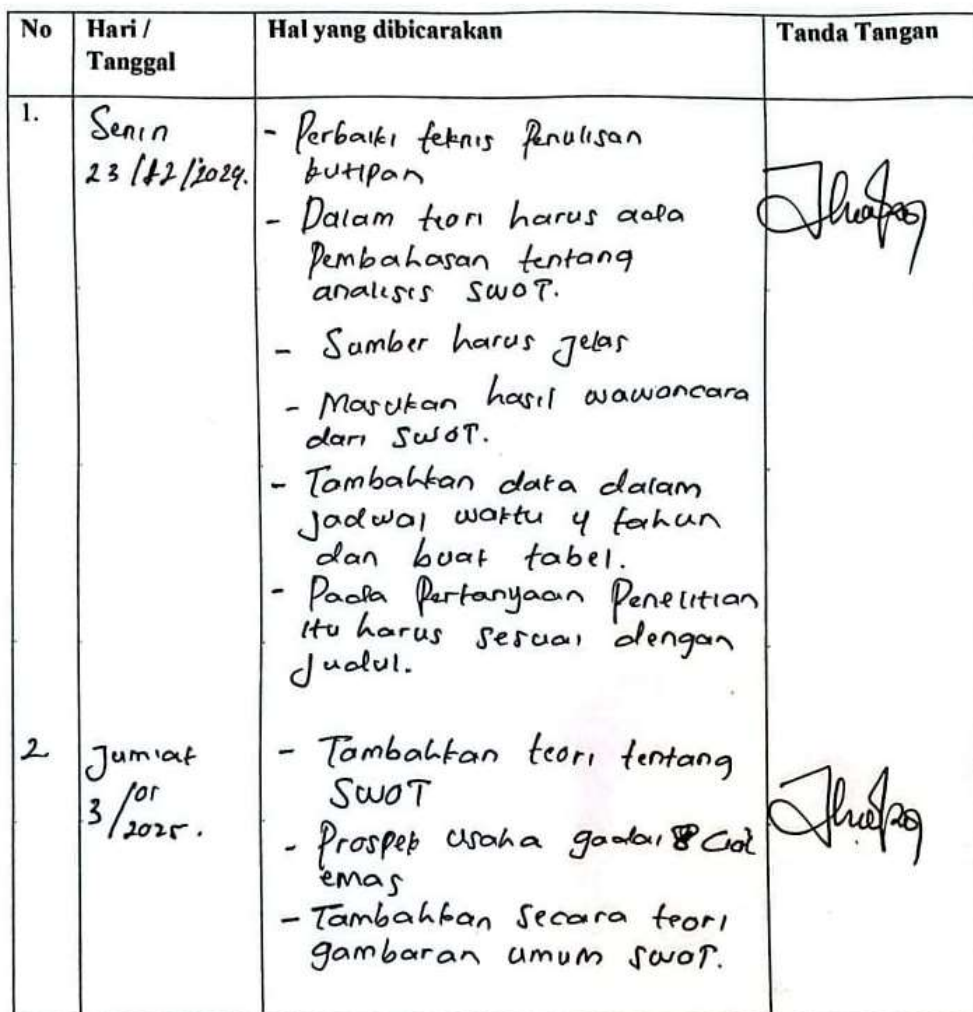 No Hari / Tanggal Hal yang dibicarakan Tanda Tangan
1. Senin
23/12/2024.
- Perbaiki teknis Penulisan
kutipan
- Dalam teori harus ada
Pembahasan tentang
analisis SWOT.
- Sumber harus jelas
- Masukan hasil wawancara
dari SWOT.
- Tambahkan data dalam
jadwal waktu 4 tahun
dan buat tabel.
- Pada Pertanyaan Penelitian
itu harus sesuai dengan
Judul.
2 Jumiat
3/01
/2025.
- Tambahkan teori tentang
SWOT
- Prospek usaha gadai
emas
- Tambahkan secara teori
gambaran umum SWOT.